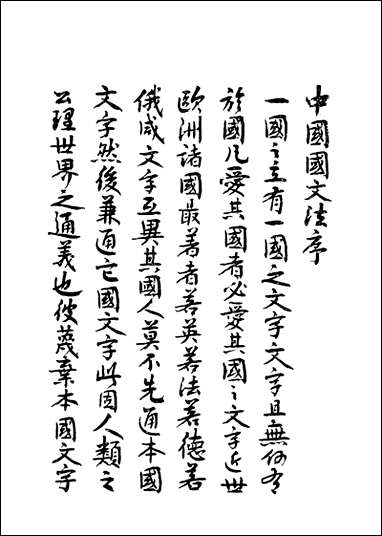 中國國文法序
一國之立有一國之文字文字且無何有
於國凡愛其國者必愛其國之文字近世
歐洲諸國最著者若英若法若德若
俄咸文字互異其國人莫不先通本國
文字然後兼通它國文字此固人類之
公理世界之通義也彼蔑棄本國文字